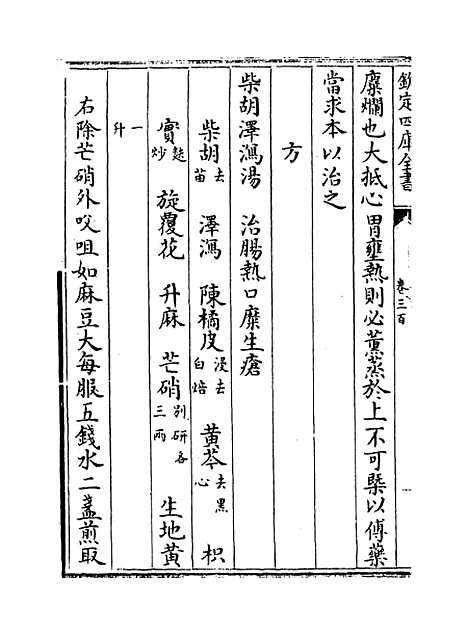 欽定四庫全書
卷三百
糜爛也大抵心胃壅熱則必薰蒸於上不可槩以傅藥
當求本以治之
方
柴胡澤瀉湯 治腸熱口糜生瘡
柴胡去苗 澤瀉 陳橘皮浸去白焙 黄芩去黑心 枳
實麩炒 旋覆花 升麻 芒硝别研各三兩 生地黄
一升
右除芒硝外㕮咀如麻豆大每服五錢水二盞煎取